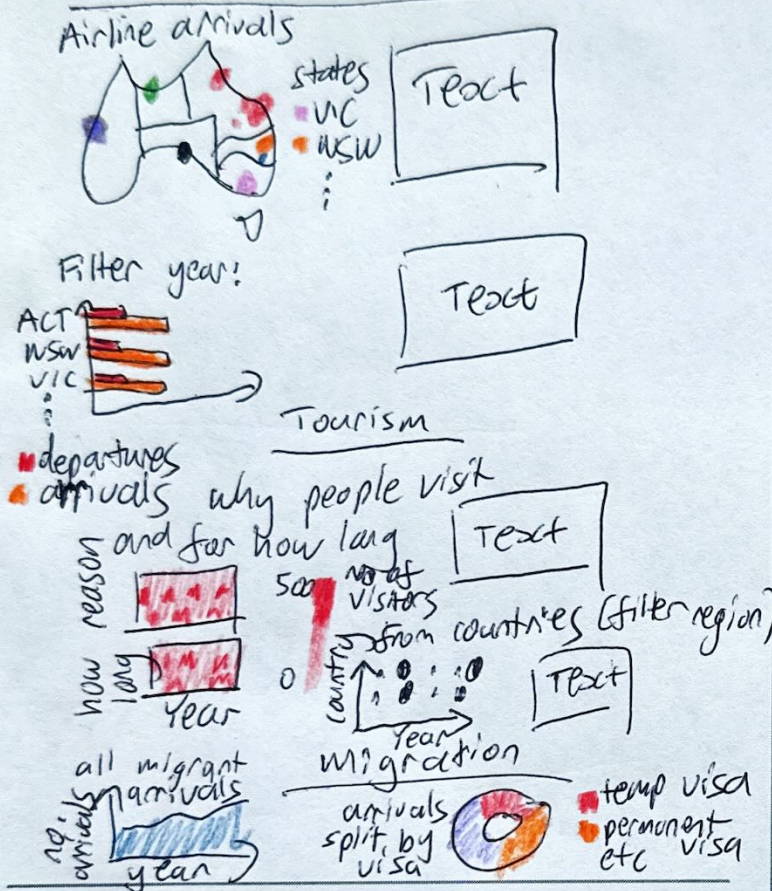 Airline arrivals
states
VIC
NSW
Text
Filter year!
ACT
NSW
VIC
Text
departures
arrivals
Tourism
why people visit
and for how long
Text
reason
how long
Year
500
0
no of
visitors
from countries (filter region)
country
Year
Text
Migration
all migrant
arrivals
no.
arrivals
year
arrivals
split by
visa
temp visa
permanent
visa
etc